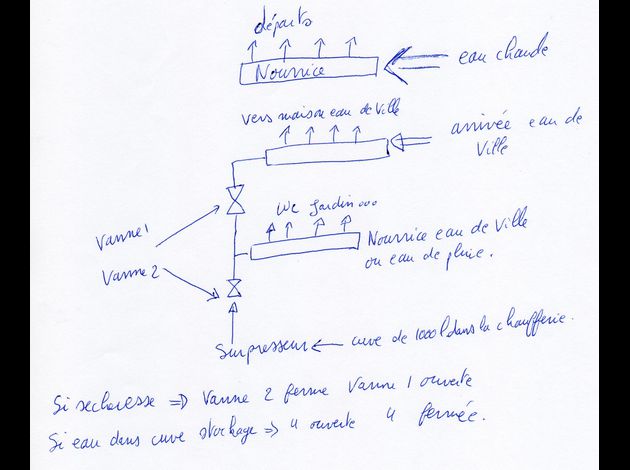 départs
Nourrice
eau chaude
vers maison eau de ville
arrivée eau de
ville
WC Jardin ooo
Vanne 1
Nourrice eau de ville
ou eau de pluie.
Vanne 2
Surpresseur
cuve de 1000 l dans la chaufferie.
Si secheresse => Vanne 2 ferme Vanne 1 ouverte
Si eau dans cuve stockage => " ouverte " fermée.